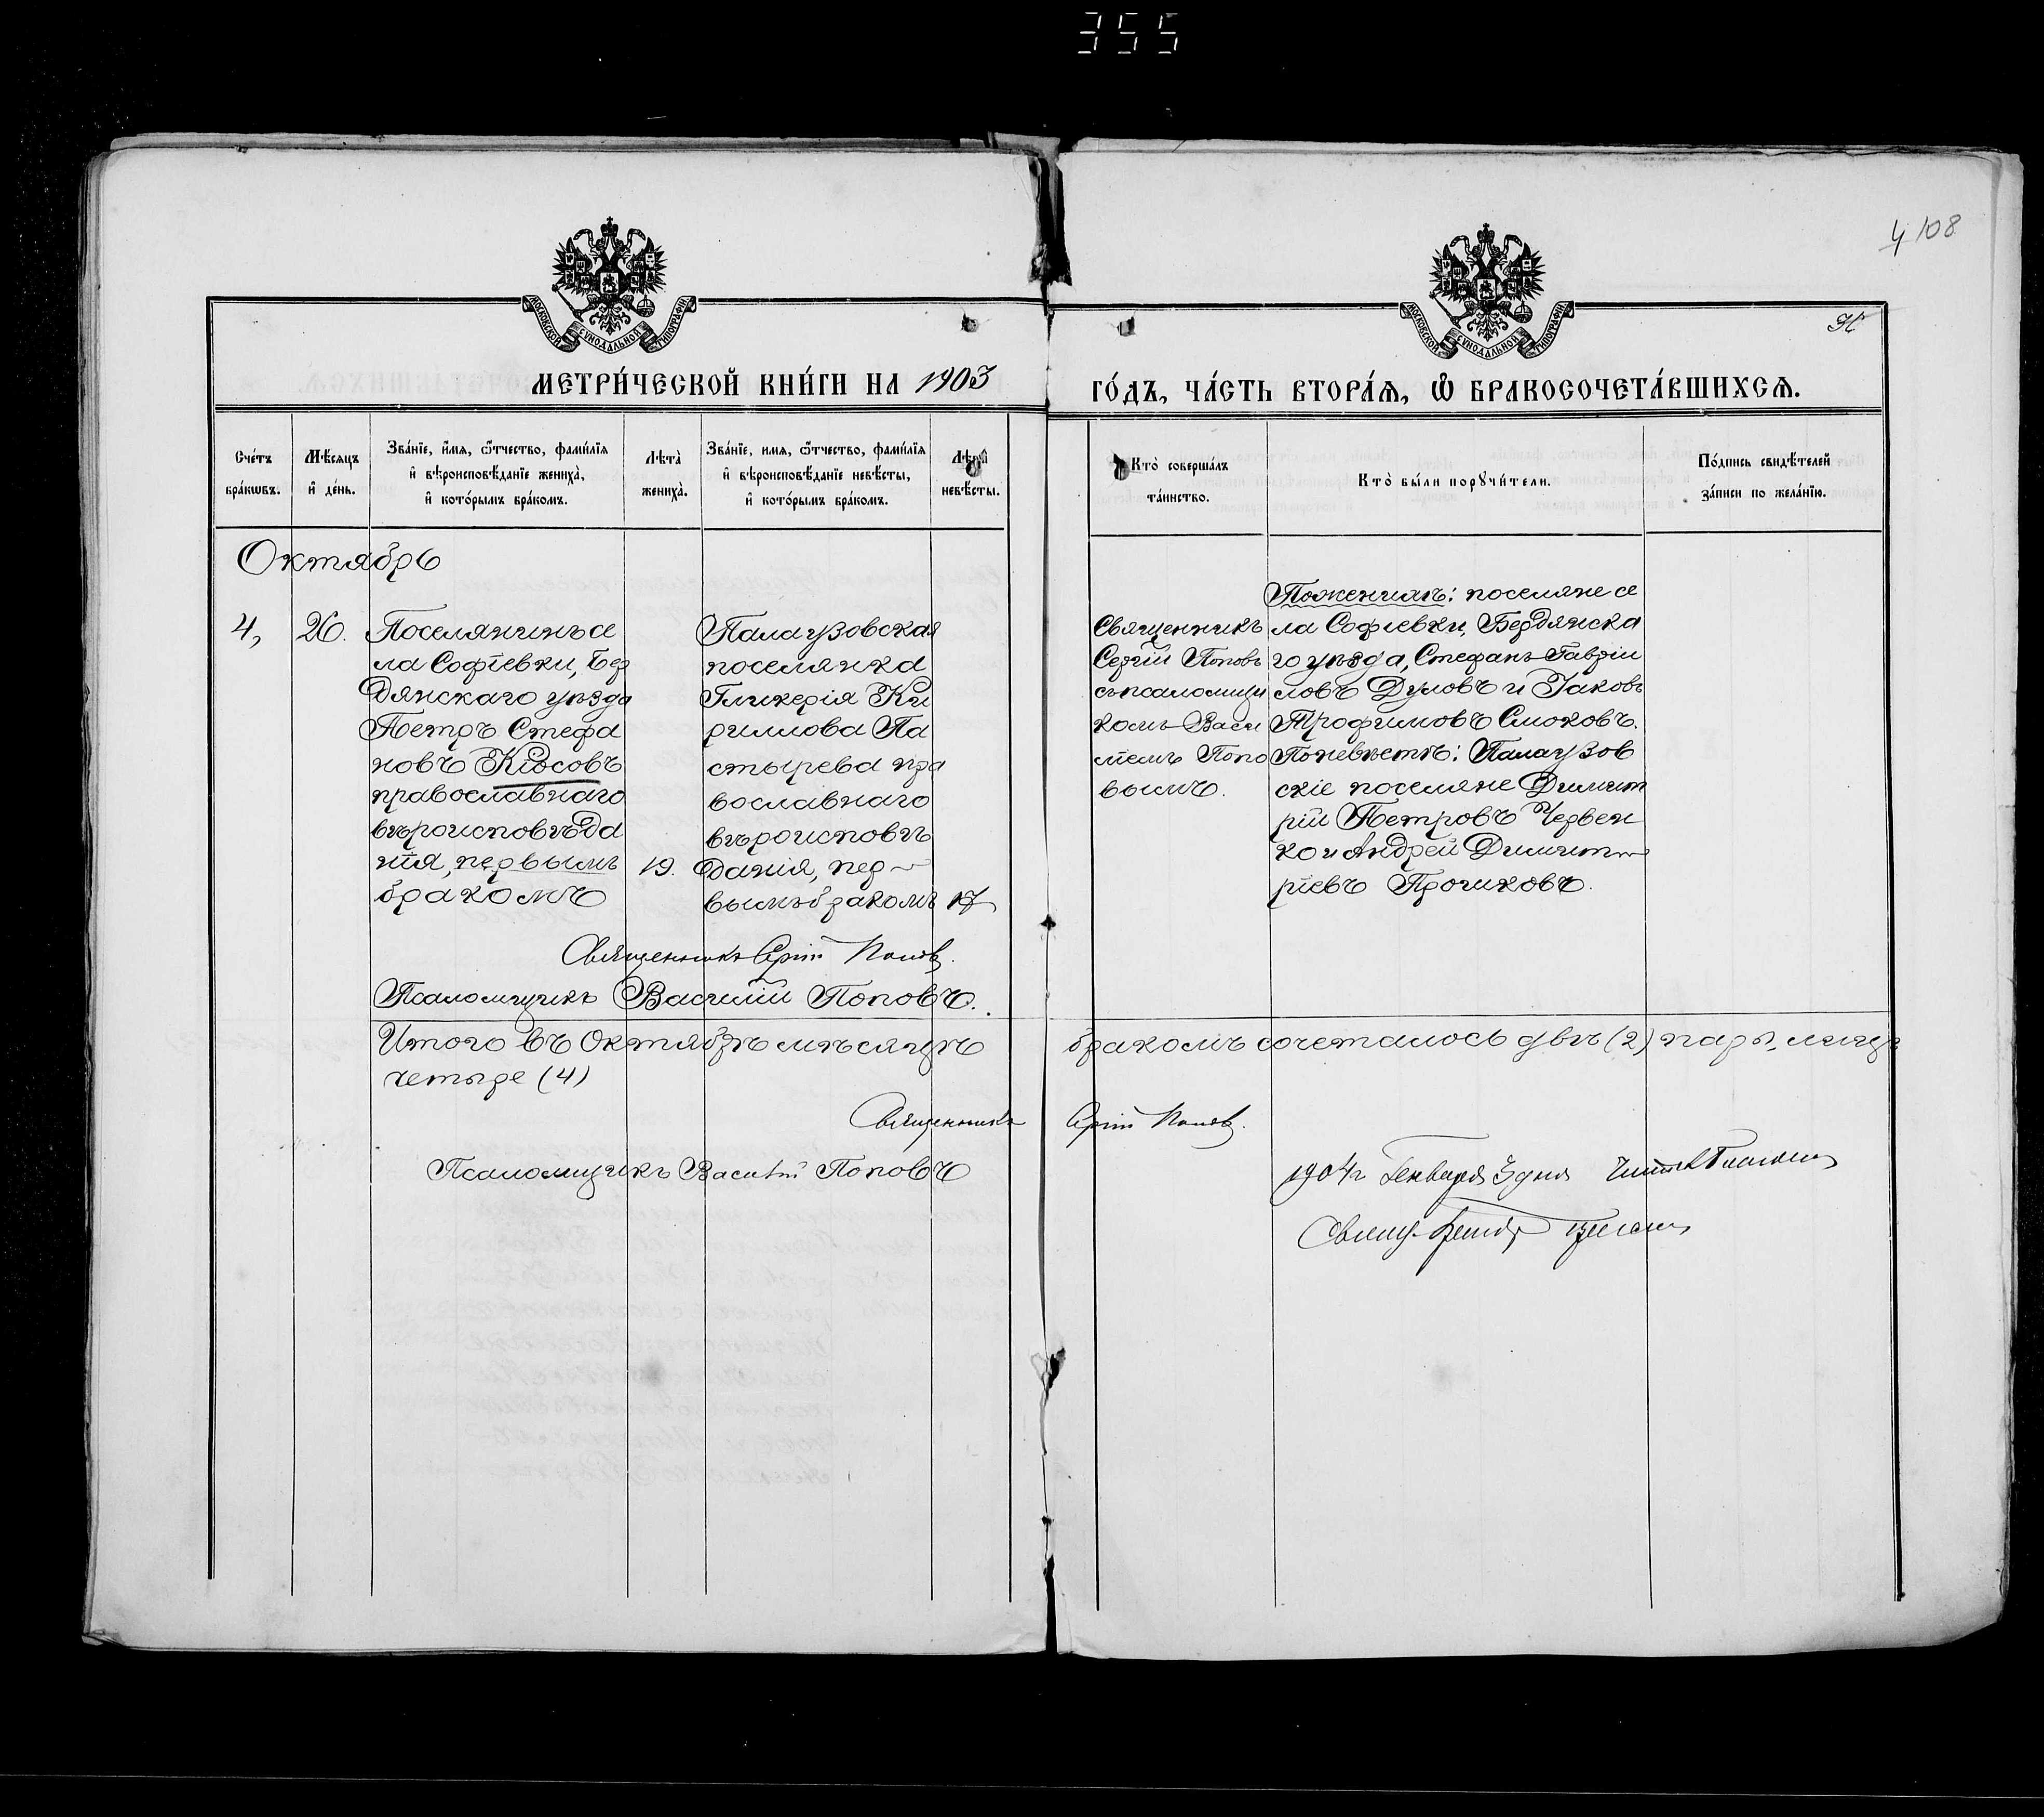 355
4 108
МОСКОВСКОЙ СѴНОДАЛЬНОЙ ТИПОГРАФІИ
МОСКОВСКОЙ СѴНОДАЛЬНОЙ ТИПОГРАФІИ
МЕТРИ́ЧЕСКОЙ КНИ́ГИ НА 1903
ГО́ДЪ, ЧА́СТЬ ВТОРА́Ѧ, Ѡ БРАКОСОЧЕТА́ВШИХСѦ.
Сче́тъ
бра́кѡвъ.
Мѣ́сяцъ
и҆ де́нь.
Зва́нїе, и҆́мя, ѻ҆́тчество, фами́лїя
и҆ вѣроисповѣ́данїе жениха̀,
и҆ кото́рымъ бра́комъ.
Лѣта̀
жениха̀.
Зва́нїе, и҆мя, ѻ҆́тчество, фами́лїя
и҆ вѣроисповѣ́данїе невѣ́сты,
и҆ кото́рымъ бра́комъ.
Лѣта̀
невѣ́сты.
Кто̀ соверша́лъ
та́инство.
Кто̀ бы́ли порꙋчи́тели.
По́дпись свидѣ́телей
за́писи по жела́нїю.
Октябрь
4,
26.
Поселянинъ се
ла Софіевки, Бер
дянскаго уѣзда
Петръ Стефа
новъ Кіосовъ
православнаго
вѣроисповѣда
нія, первымъ
бракомъ
19.
Палаузовская
поселянка
Гликерія Ки
риллова Па
стырева пра
вославнаго
вѣроисповѣ
данія, пер
вымъ бракомъ
17
Священникъ
Сергій Поповъ
съ псаломщи
комъ Васи
ліемъ Попо
вымъ.
По женихѣ: поселяне се
ла Софіевки, Бердянска
го уѣзда, Стефанъ Гавріи
ловъ Дуловъ и Іаковъ
Трофимовъ Смоковъ.
По невѣстѣ: Палаузов
скіе поселяне Димит
рій Петровъ Червен
ко и Андрей Димит
ріевъ Прочковъ.
Священникъ Сергій Поповъ.
Псаломщикъ Василій Поповъ.
Итого въ Октябрѣ мѣсяцѣ бракомъ сочеталось двѣ (2) пары, лицъ
четыре (4)
Священникъ Сергій Поповъ.
Псаломщикъ Василій Поповъ
1904 г. Генваря 3 дня